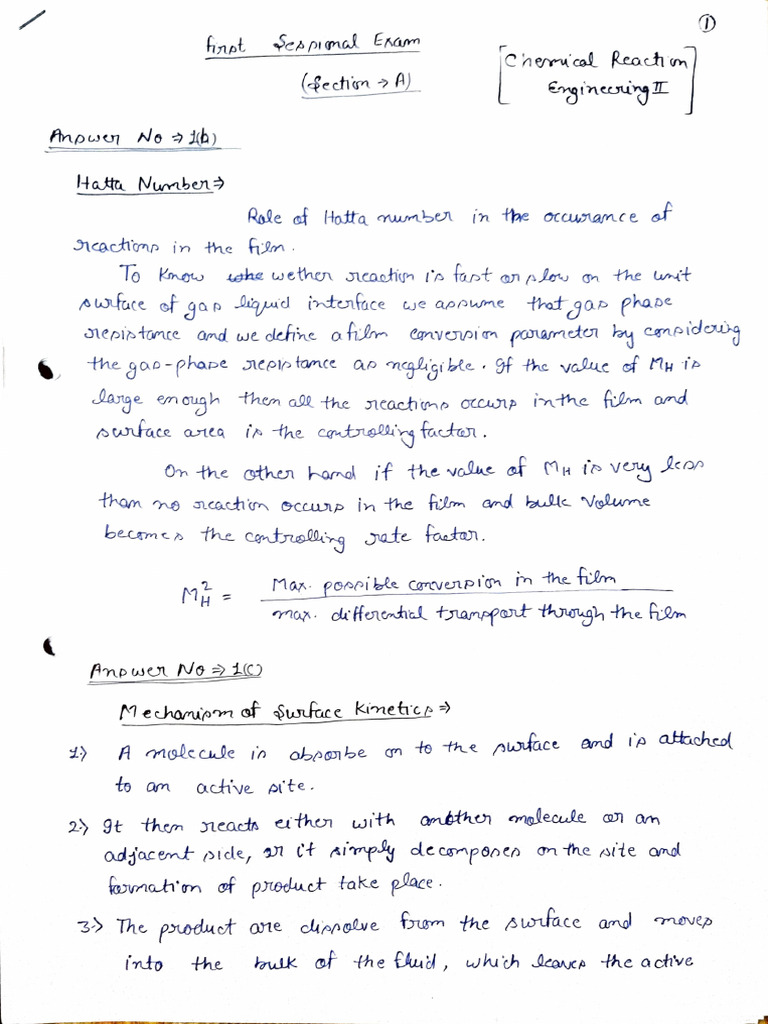 ①
First Sessional Exam
(Section → A)
[Chemical Reaction
Engineering II]
Answer No ⇒ 1(b)
Hatta Number ⇒
Role of Hatta number in the occurance of
reactions in the film.
To know wether reaction is fast or slow on the unit
surface of gas liquid interface we assume that gas phase
resistance and we define a film conversion parameter by considering
the gas-phase resistance as negligible. If the value of MH is
large enough then all the reactions occurs in the film and
surface area is the controlling factor.
On the other hand if the value of MH is very less
than no reaction occurs in the film and bulk volume
becomes the controlling rate factor.
M²H = Max. possible conversion in the film
max. differential transport through the film
Answer No ⇒ 1(c)
Mechanism of Surface Kinetics ⇒
1.) A molecule is absorbe on to the surface and is attached
to an active site.
2.) It then reacts either with another molecule or an
adjacent side, or it simply decomposes on the site and
formation of product take place.
3.) The product are dissolve from the surface and moves
into the bulk of the fluid, which leaves the active